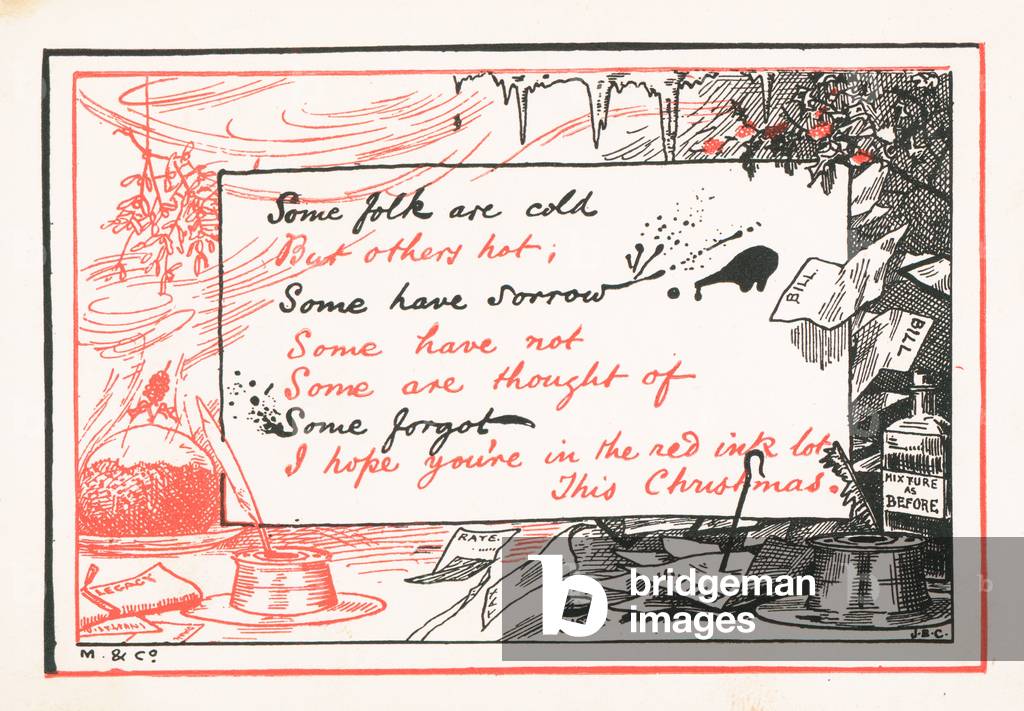 Some folk are cold
But others hot;
Some have sorrow
Some have not
Some are thought of
Some forgot
I hope you're in the red ink lot
This Christmas.
BILL
BILL
MIXTURE
AS
BEFORE
RATE
LEGACY
J.B.C.
M. & Co.
b bridgeman
images